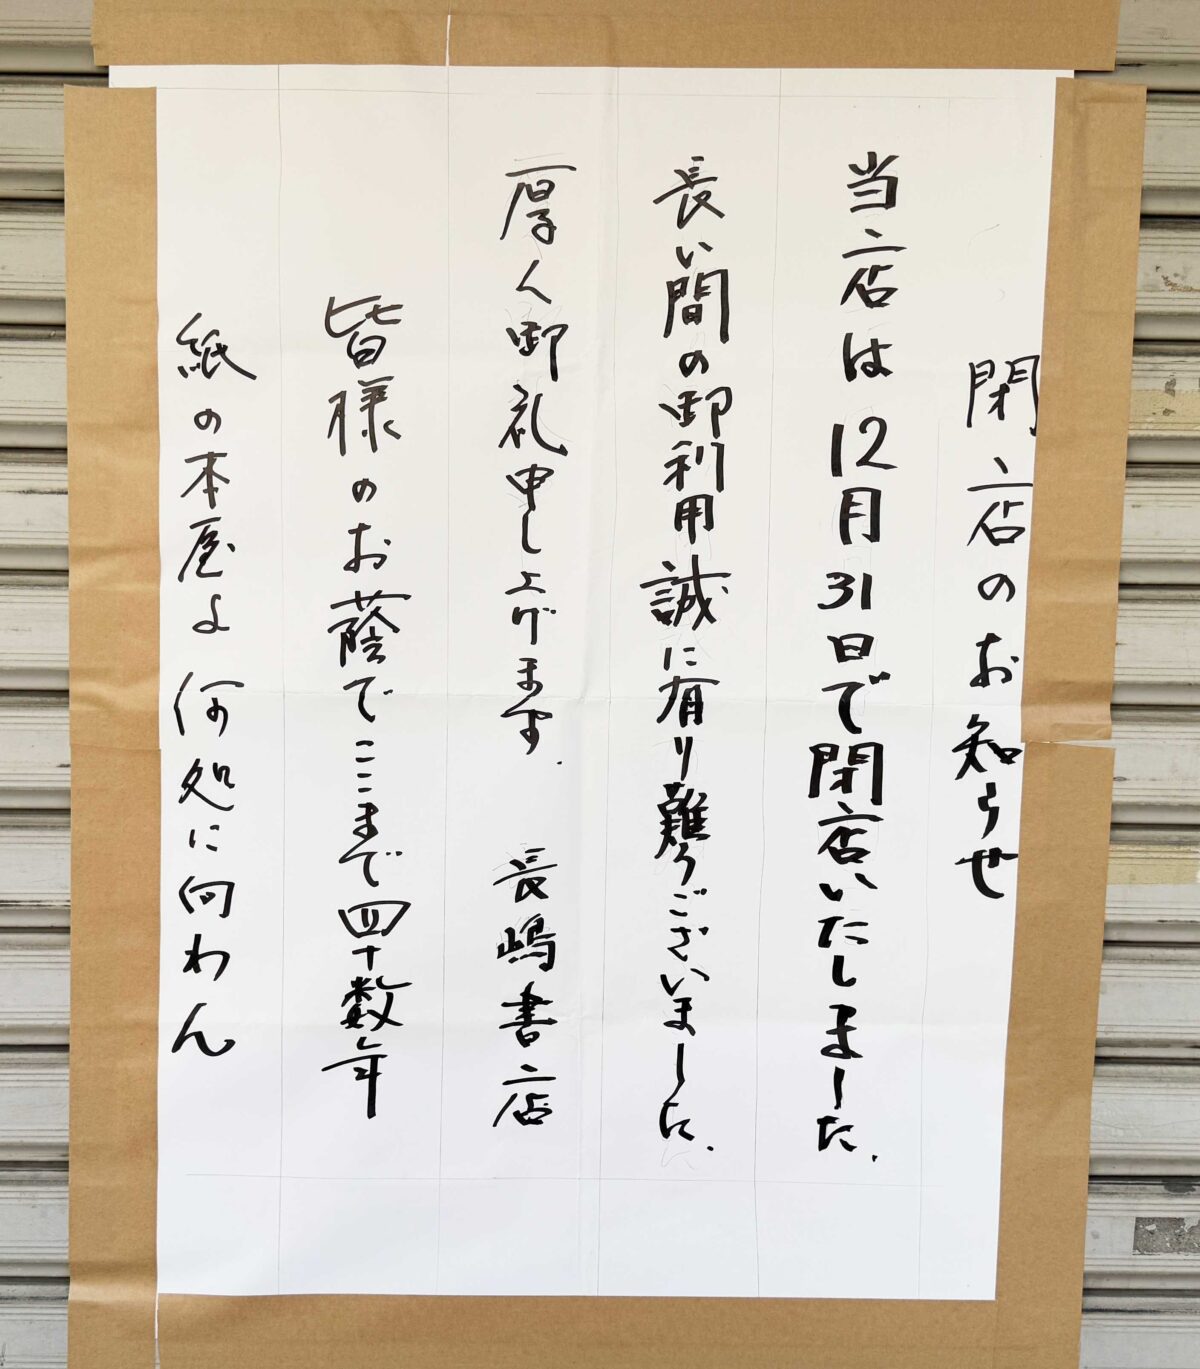 閉店のお知らせ
当店は12月31日で閉店いたしました.
長い間の御利用誠に有り難うございました.
厚く御礼申し上げます. 長嶋書店
皆様のお蔭でここまで四十数年
紙の本屋よ 何処に向わん